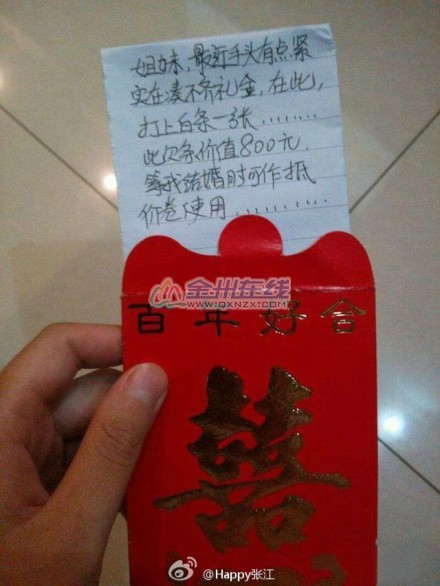 姐妹,最近手头有点紧
实在凑不齐礼金,在此,
打上白条一张........
此欠条价值800元.
等我结婚时可作抵
价卷使用...........
金州在线
WWW.QXNZX.COM
百年好合
囍
@Happy张江